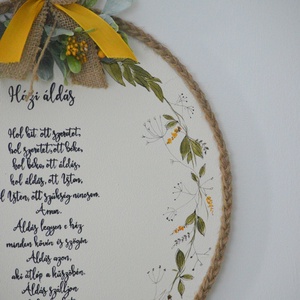 Házi áldás
Hol hit, ott szeretet,
hol szeretet, ott béke,
hol béke, ott áldás,
hol áldás, ott Isten,
hol Isten, ott szükség nincsen.
Ámen.
Áldás legyen e ház
minden kövén és szögén.
Áldás azon,
aki átlép a küszöbén.
Áldás szálljon